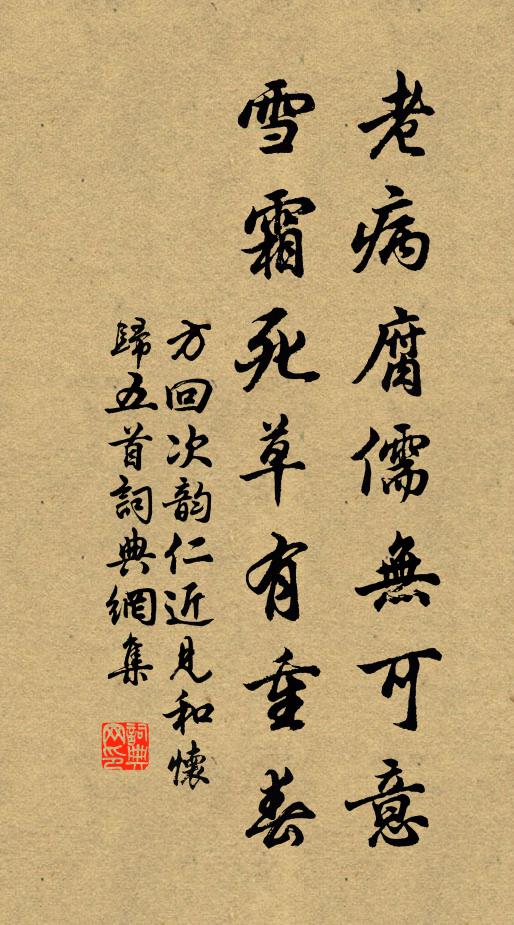 老病腐儒無可意
雪霜死草有重春
方回次韵仁近見和懷
歸五首詞典網集
詞典
网印